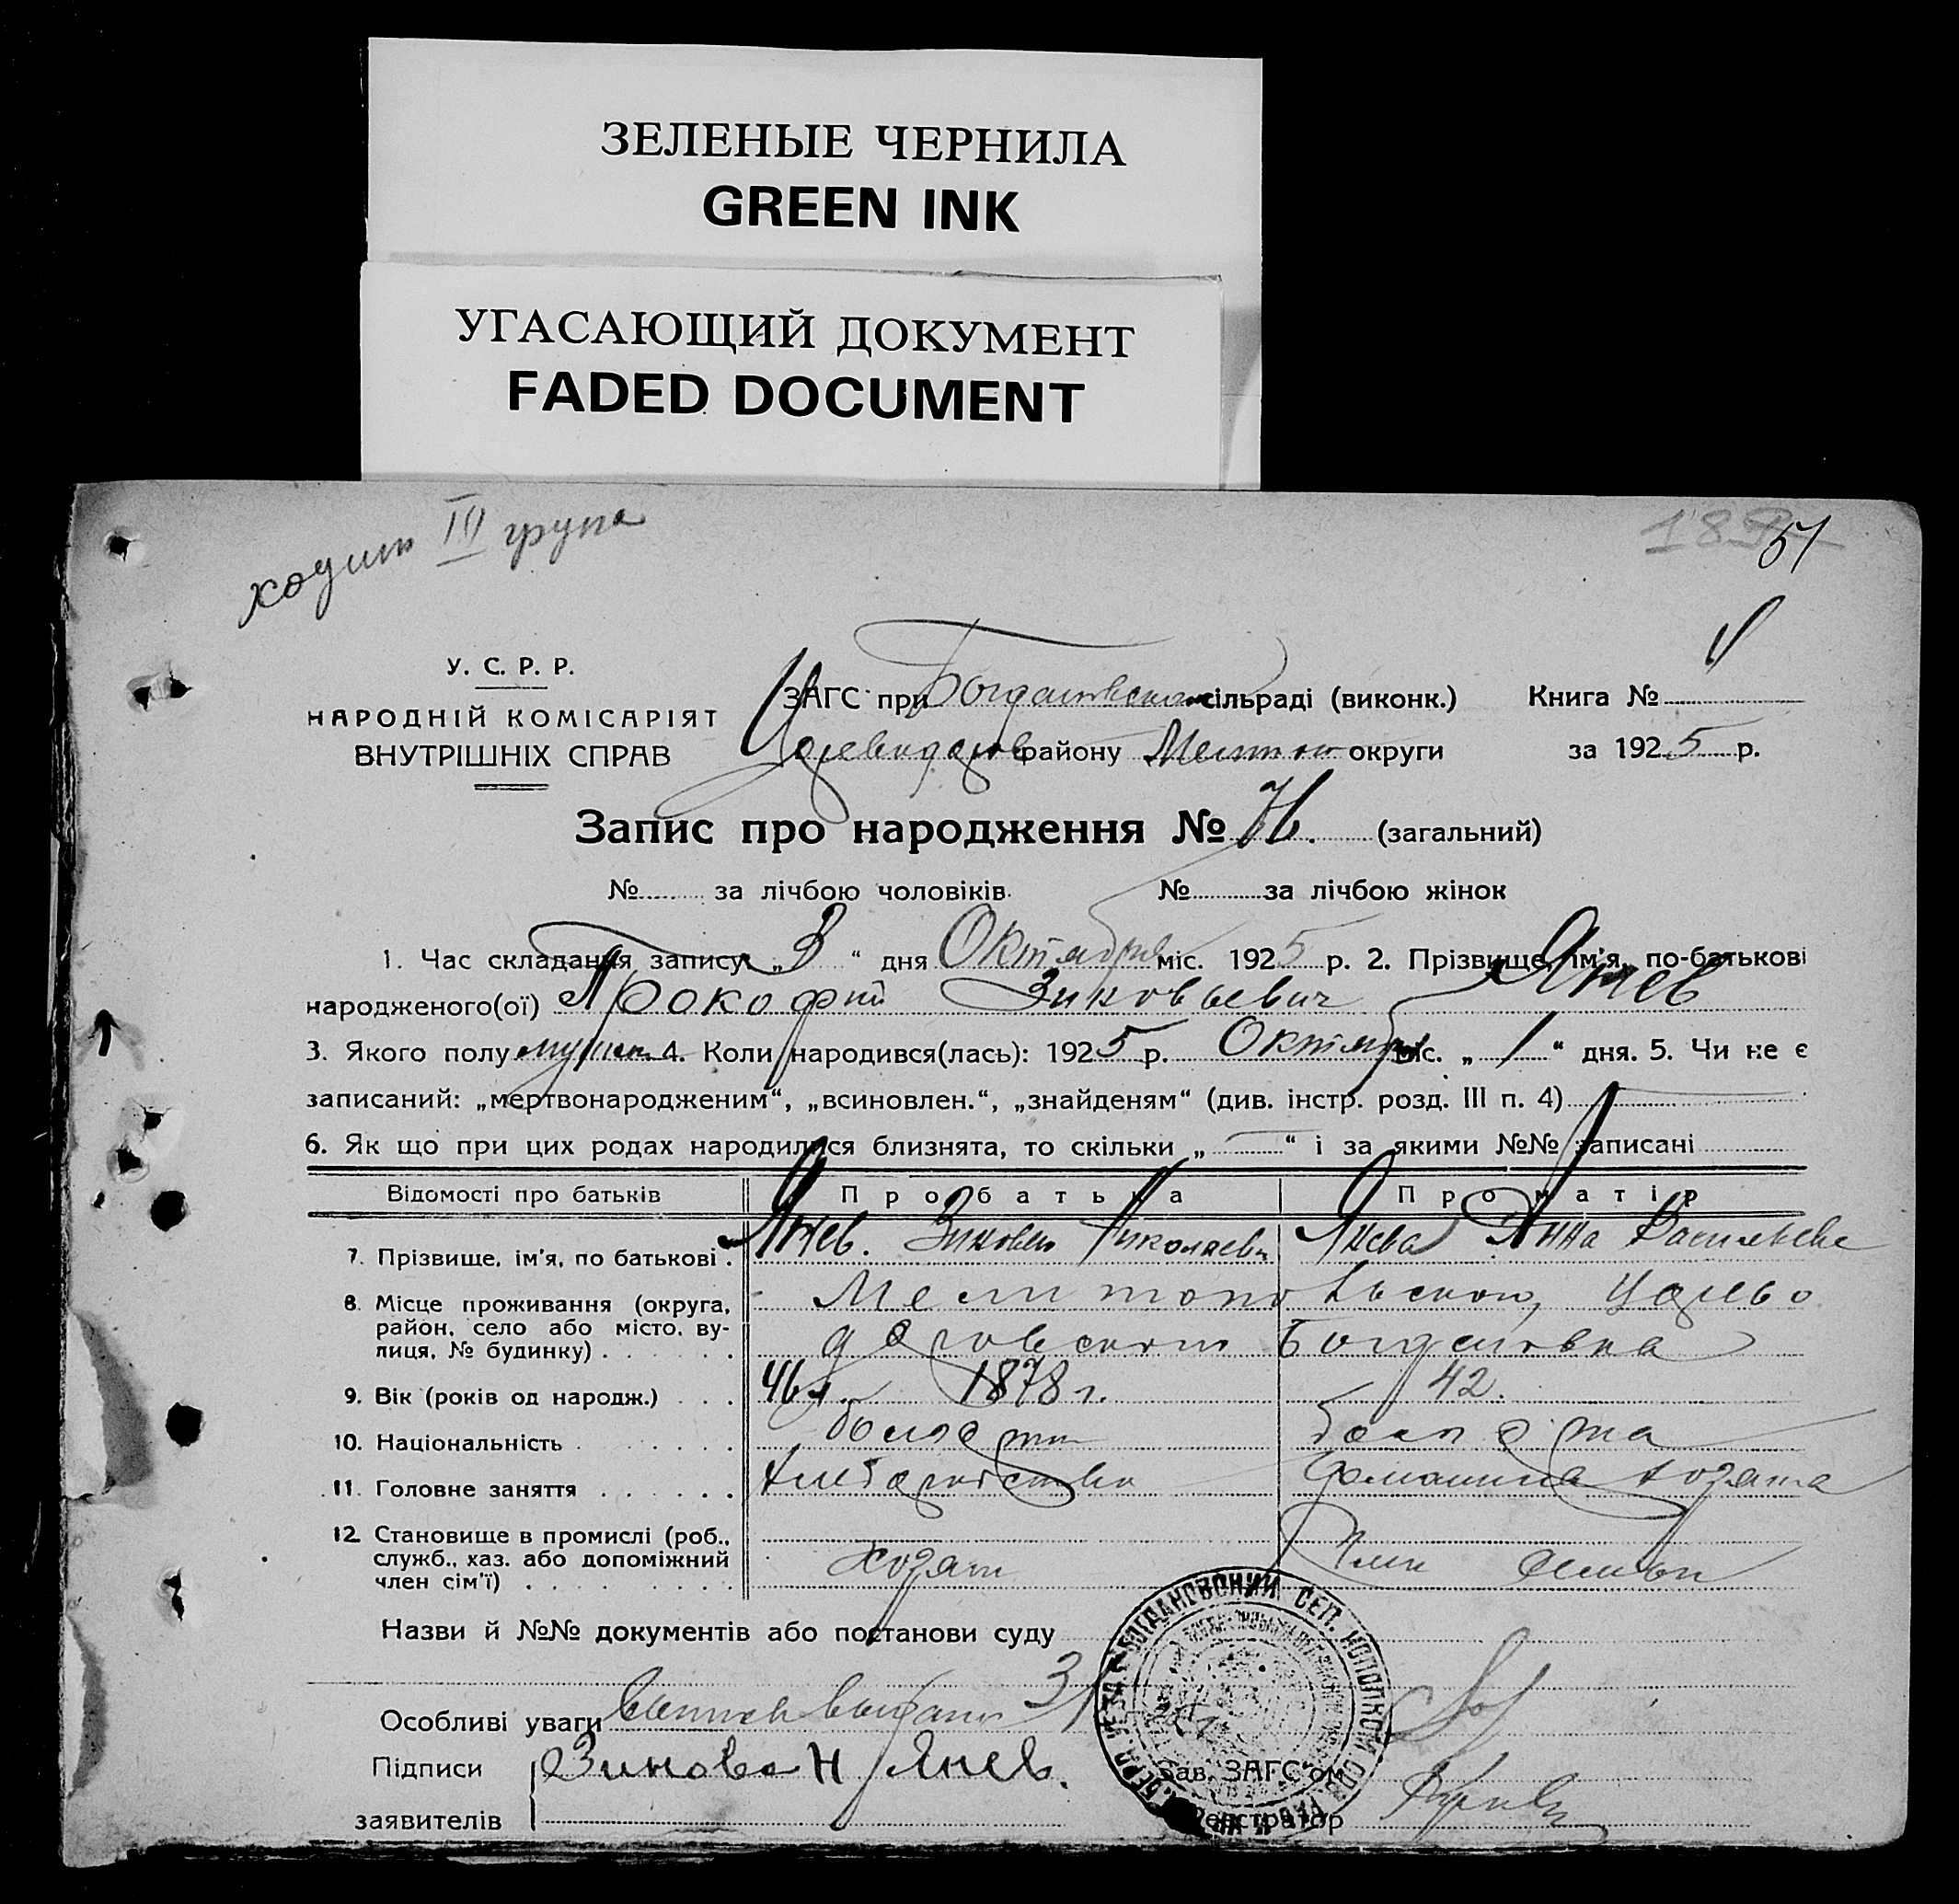 ЗЕЛЕНЫЕ ЧЕРНИЛА
GREEN INK
УГАСАЮЩИЙ ДОКУМЕНТ
FADED DOCUMENT
ходит IV група
51
У. С. Р. Р.
НАРОДНІЙ КОМІСАРІЯТ
ВНУТРІШНІХ СПРАВ
ЗАГС при Богдановском сільраді (виконк.) Книга №
Цареводаров району Мелитоп округи за 1925 р.
Запис про народження № 76. (загальний)
№ за лічбою чоловіків № за лічбою жінок
1. Час складання запису „3“ дня Октября міс. 1925 р. 2. Прізвище, ім'я, по-батькові
народженого(ої) Прокофий Зиновьевич Янев
3. Якого полу 4. Коли народився(лась): 1925 р. Октябр міс. „1“ дня. 5. Чи не є
записаний: „мертвонародженим“, „всиновлен.“, „знайденям“ (див. інстр. розд. III п. 4)
6. Як що при цих родах народилися близнята, то скільки „ “ і за якими №№ записані
Відомості про батьків Про батька Про матір
7. Прізвище, ім'я, по батькові Янев. Зиновий Николаеви Янева Анна Васильевн
8. Місце проживання (округа, район, село або місто, ву-лиця, № будинку) Мелитопольской, Царево
даровского Богдановка
9. Вік (років од народж.) 46 л. 1878 г. 42.
10. Національність болгарин болгарка
11. Головне заняття хлебопашество Домашняя хозяйка
12. Становище в промислі (роб., служб., хаз. або допоміжний член сім'ї) хозяин Член семьи
Назви й №№ документів або постанови суду
Особливі уваги
Підписи Зиновей Н Янев.
заявителів
Зав. ЗАГС'ом
Реєстратор